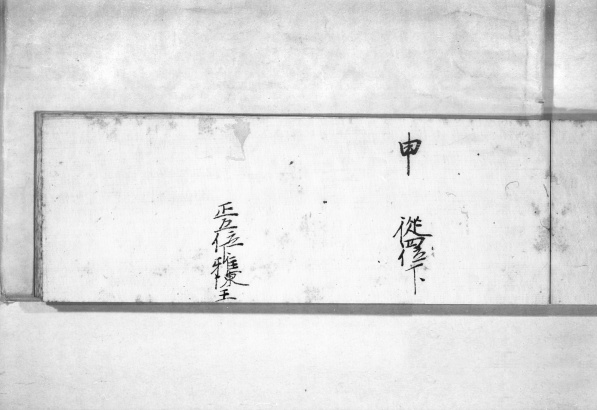 申 從四位下
正五位雅陳王